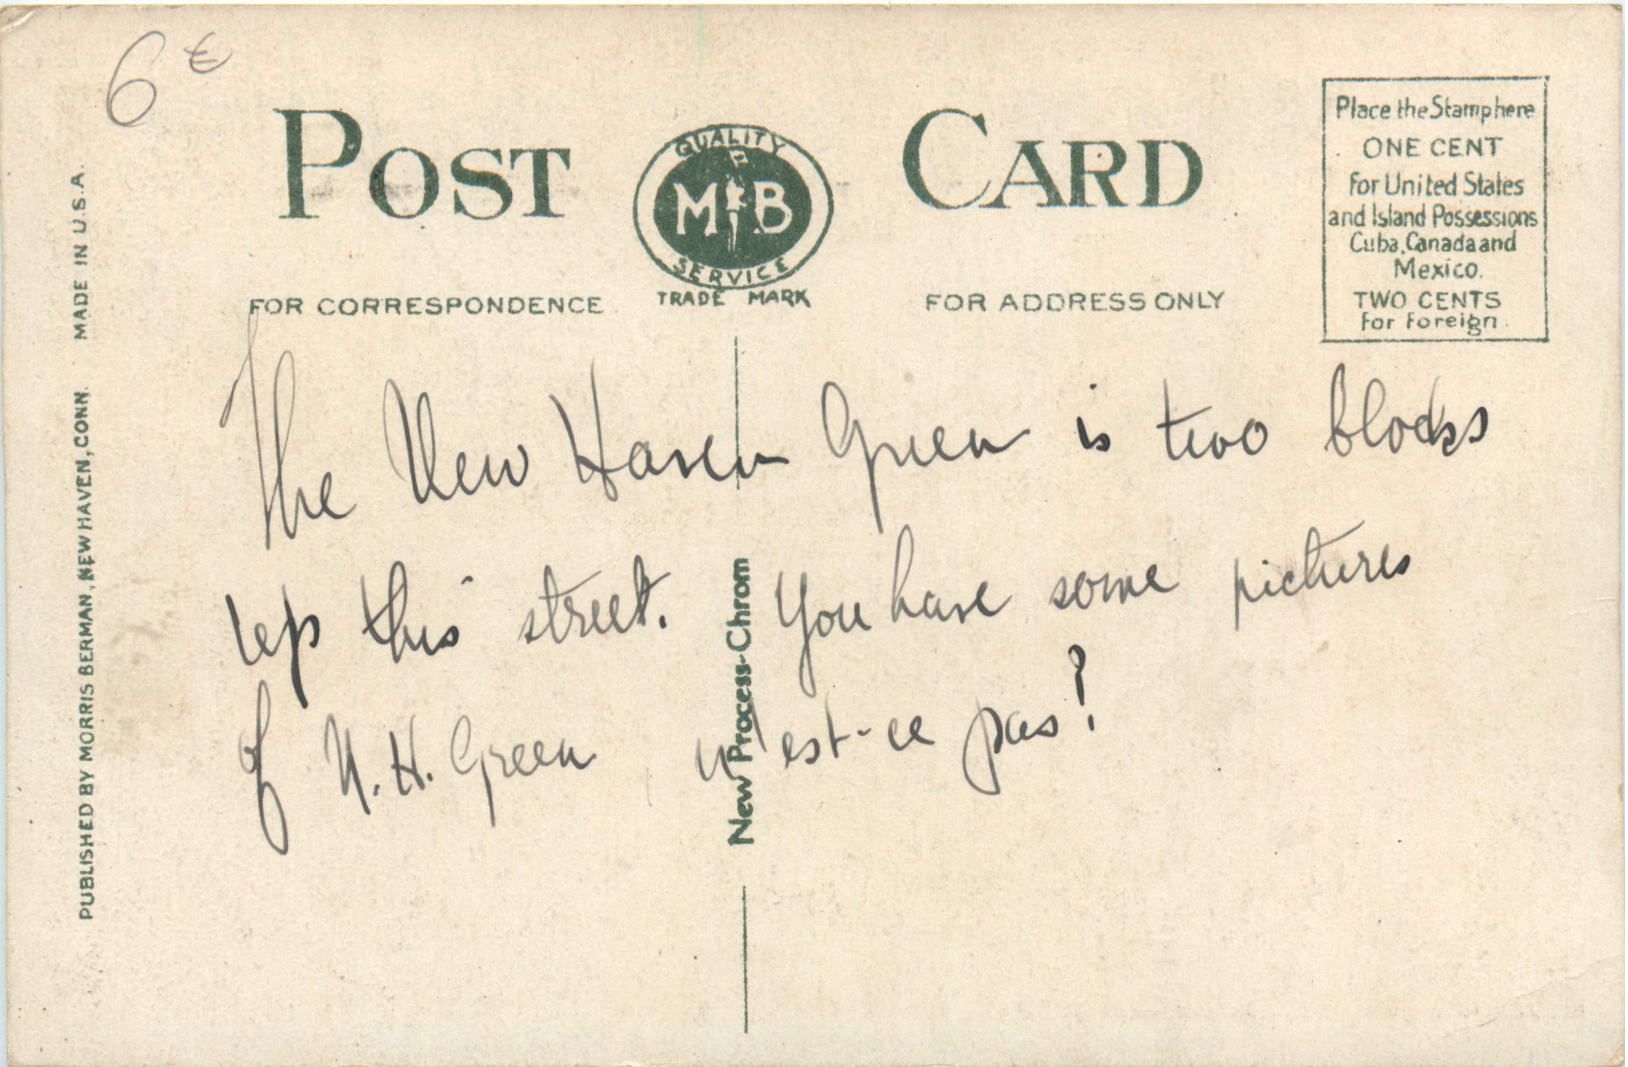 6 €
POST CARD
QUALITY
M B
SERVICE
TRADE MARK
FOR CORRESPONDENCE
FOR ADDRESS ONLY
Place the Stamp here
ONE CENT
For United States
and Island Possessions
Cuba, Canada and
Mexico.
TWO CENTS
For Foreign.
The New Haven Green is two blocks
up this street. You have some pictures
of N. H. Green n'est-ce pas?
New Process-Chrom
PUBLISHED BY MORRIS BERMAN, NEW HAVEN, CONN. MADE IN U.S.A.